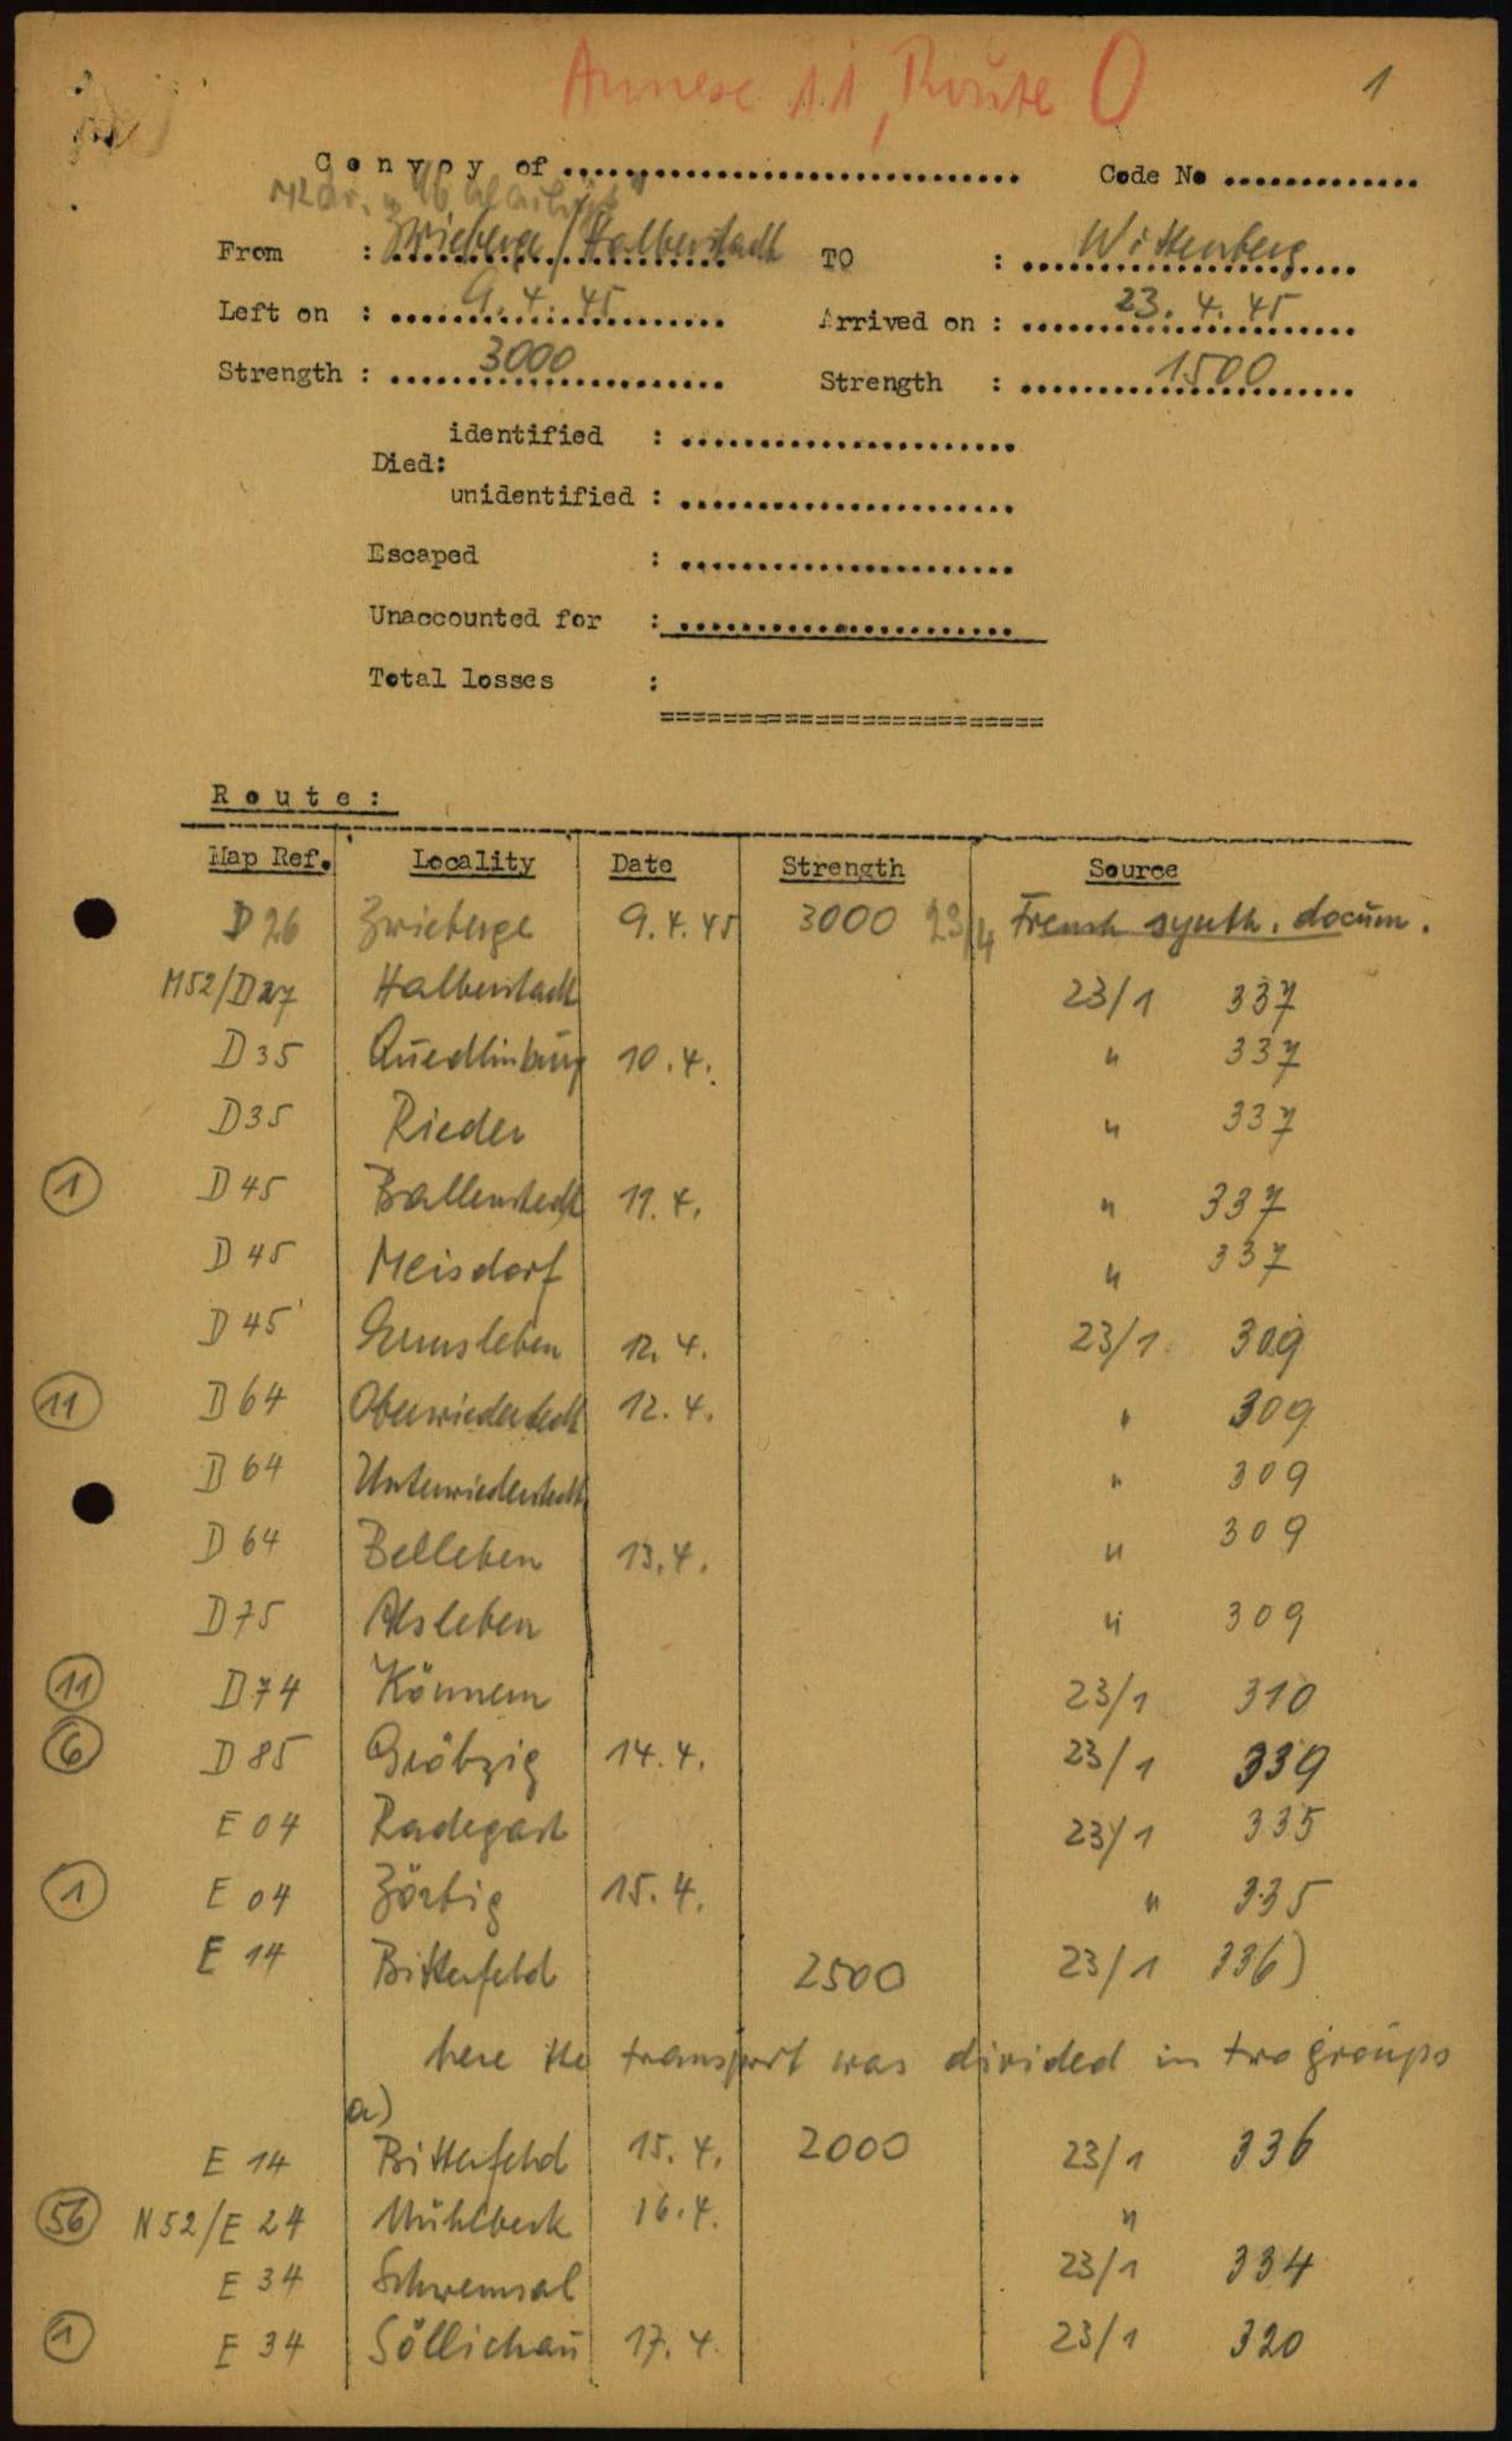 Annexe 11, Route O
1
Convoy of ..............................
Code No .............
From : Zwieberge / Halberstadt TO : Wittenberg
Left on : 9. 4. 45 Arrived on : 23. 4. 45
Strength : 3000 Strength : 1500
identified : ......................
Died:
unidentified : ......................
Escaped : ......................
Unaccounted for : ......................
Total losses :
=========================
Route:
Map Ref. Locality Date Strength Source
D 26 Zwieberge 9. 4. 45 3000 23/4 French synth. docum.
M52/D27 Halberstadt 23/1 337
D 35 Quedlinburg 10. 4. " 337
D 35 Rieder " 337
1 D 45 Ballenstedt 11. 4. " 337
D 45 Meisdorf " 337
D 45 Ermsleben 12. 4. 23/1 309
11 D 64 Oberwiederstedt 12. 4. " 309
D 64 Unterwiederstedt " 309
D 64 Belleben 13. 4. " 309
D 75 Alsleben " 309
11 D 74 Könnern 23/1 310
6 D 85 Gröbzig 14. 4. 23/1 339
E 04 Radegast 23/1 335
1 E 04 Zörbig 15. 4. " 335
E 14 Bitterfeld 2500 23/1 336)
here the transport was divided in two groups
a)
E 14 Bitterfeld 15. 4. 2000 23/1 336
56 N52/E 24 Mühlbeck 16. 4. "
E 34 Schwemsal 23/1 334
1 E 34 Söllichau 17. 4. 23/1 320